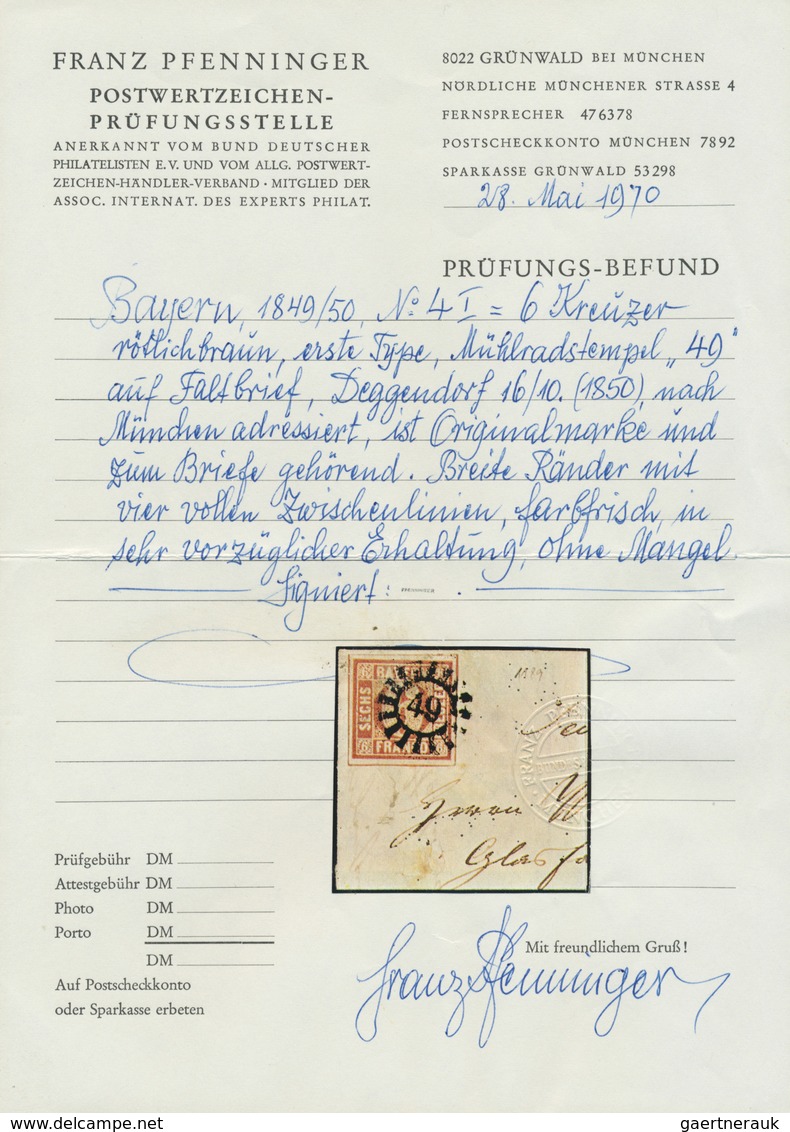 FRANZ PFENNINGER
POSTWERTZEICHEN-
PRÜFUNGSSTELLE
ANERKANNT VOM BUND DEUTSCHER
PHILATELISTEN E.V. UND VOM ALLG. POSTWERT-
ZEICHEN-HÄNDLER-VERBAND · MITGLIED DER
ASSOC. INTERNAT. DES EXPERTS PHILAT.
8022 GRÜNWALD BEI MÜNCHEN
NÖRDLICHE MÜNCHENER STRASSE 4
FERNSPRECHER 476378
POSTSCHECKKONTO MÜNCHEN 7892
SPARKASSE GRÜNWALD 53298
28. Mai 1970
PRÜFUNGS-BEFUND
Bayern, 1849/50, No. 4 I = 6 Kreuzer
rötlichbraun, erste Type, Mühlradstempel „49"
auf Faltbrief, Deggendorf 16/10. (1850) nach
München adressiert, ist Originalmarke und
zum Briefe gehörend. Breite Ränder mit
vier vollen Zwischenlinien, farbfrisch, in
sehr vorzüglicher Erhaltung, ohne Mangel.
Signiert: PFENNINGER.
SECHS
49
FRANCO
Herrn
Prüfgebühr DM
Attestgebühr DM
Photo DM
Porto DM
DM
Auf Postscheckkonto
oder Sparkasse erbeten
Mit freundlichem Gruß!
Franz Pfenninger
www.delcampe.net
gaertnerauk